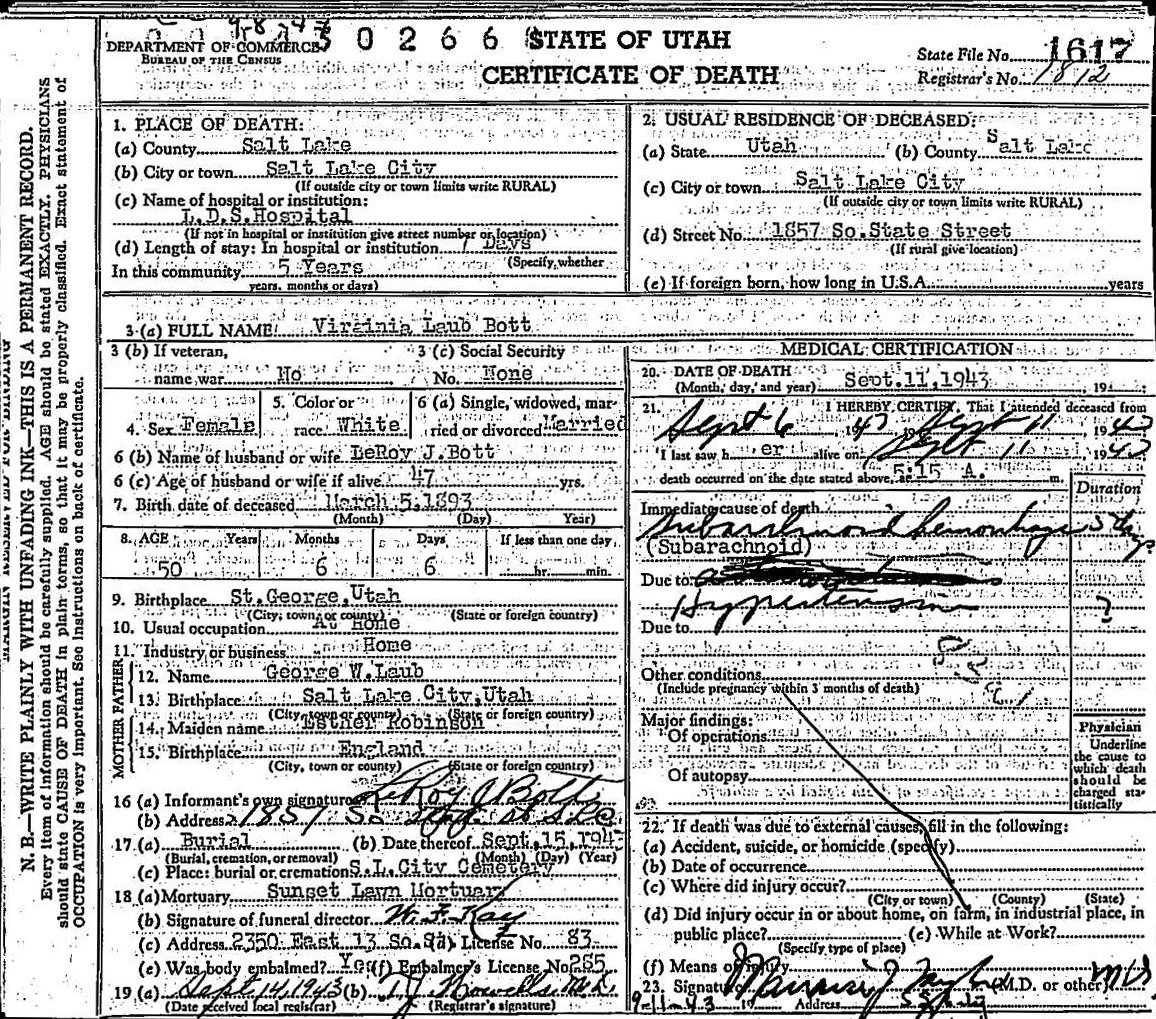 DEPARTMENT OF COMMERCE
BUREAU OF THE CENSUS
0 2 6 6
STATE OF UTAH
CERTIFICATE OF DEATH
State File No. 1617
Registrar's No. 1812
N. B.—WRITE PLAINLY WITH UNFADING INK—THIS IS A PERMANENT RECORD.
Every item of information should be carefully supplied. AGE should be stated EXACTLY. PHYSICIANS
should state CAUSE OF DEATH in plain terms, so that it may be properly classified. Exact statement of
OCCUPATION is very important. See instructions on back of certificate.
1. PLACE OF DEATH:
(a) County Salt Lake
(b) City or town Salt Lake City
(If outside city or town limits write RURAL)
(c) Name of hospital or institution:
L.D.S.Hospital
(If not in hospital or institution give street number or location)
(d) Length of stay: In hospital or institution Days
(Specify whether
In this community 5 Years
years, months or days)
2. USUAL RESIDENCE OF DECEASED:
(a) State Utah (b) County Salt Lake
(c) City or town Salt Lake City
(If outside city or town limits write RURAL)
(d) Street No. 1857 So.State Street
(If rural give location)
(e) If foreign born, how long in U.S.A. years
3 (a) FULL NAME Virginia Laub Bott
3 (b) If veteran,
name war No
3 (c) Social Security
No. None
4. Sex Female
5. Color or
race White
6 (a) Single, widowed, mar-
ried or divorced Married
6 (b) Name of husband or wife LeRoy J.Bott
6 (c) Age of husband or wife if alive 47 yrs.
7. Birth date of deceased March 5,1893
(Month) (Day) Year)
8. AGE Years Months Days If less than one day
50 6 6 hr. min.
9. Birthplace St.George,Utah
(City, town or county) (State or foreign country)
10. Usual occupation At Home
11. Industry or business Home
FATHER
12. Name George W.Laub
13. Birthplace Salt Lake City,Utah
(City, town or county) (State or foreign country)
MOTHER
14. Maiden name Esther Robinson
15. Birthplace England
(City, town or county) (State or foreign country)
16 (a) Informant's own signature LeRoy J Bott
(b) Address 1857 So State St S.L.C.
17 (a) Burial (b) Date thereof Sept.15,1943
(Burial, cremation, or removal) (Month) (Day) (Year)
(c) Place: burial or cremation S.L.City Cemetery
18 (a) Mortuary Sunset Lawn Mortuary
(b) Signature of funeral director W. F. Kay
(c) Address 2350 East 13 So.St. (d) License No. 83
(e) Was body embalmed? Yes (f) Embalmer's License No. 285
19 (a) Sept 14,1943 (b) T J Howells M.D.
(Date received local registrar) (Registrar's signature)
MEDICAL CERTIFICATION
20. DATE OF DEATH
(Month, day, and year) Sept.11,1943 , 19
21. I HEREBY CERTIFY, That I attended deceased from
Sept 6 , 1943 Sept 11 1943
I last saw h er alive on Sept 11 , 1943
death occurred on the date stated above, at 5:15 A. m.
Duration
Immediate cause of death
Subarachnoid hemorrhage 5 days
(Subarachnoid)
Due to
Hypertension ?
Due to
Other conditions
(Include pregnancy within 3 months of death)
Major findings:
Of operations
Of autopsy
Physician
Underline
the cause to
which death
should be
charged sta-
tistically
22. If death was due to external causes, fill in the following:
(a) Accident, suicide, or homicide (specify)
(b) Date of occurrence
(c) Where did injury occur?
(City or town) (County) (State)
(d) Did injury occur in or about home, on farm, in industrial place, in
public place? (e) While at Work?
(Specify type of place)
(f) Means of injury
23. Signature (M.D. or other) MD
Address